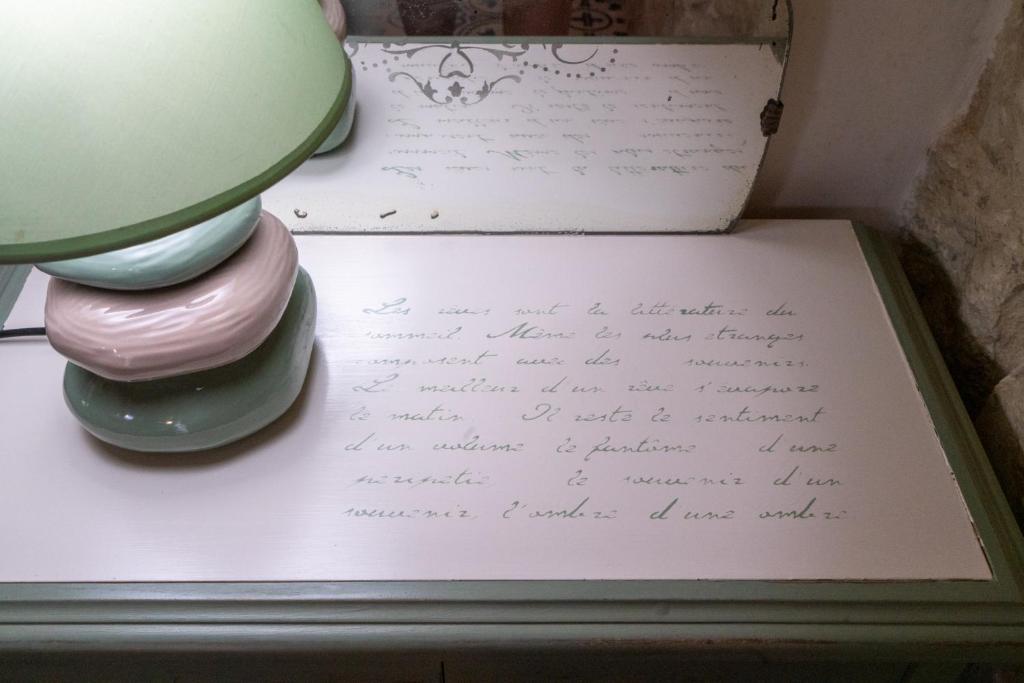 Les rêves sont la littérature du
sommeil. Même les plus étranges
composent avec des souvenirs.
Le meilleur d'un rêve s'évapore
le matin. Il reste le sentiment
d'un volume le fantôme d'une
peripetie le souvenir d'un
souvenir, l'ombre d'une ombre